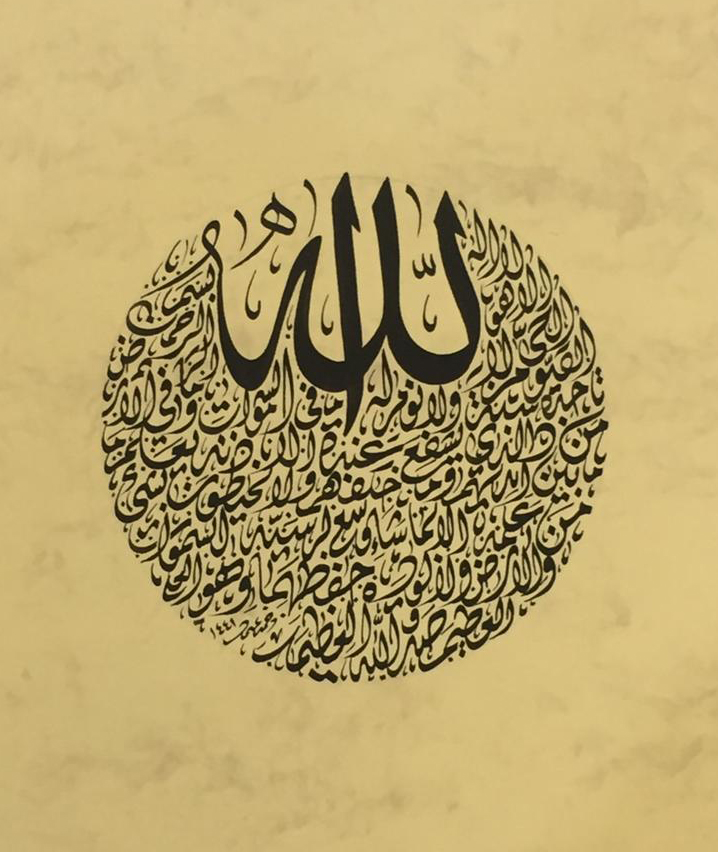 بسم الله الرحمن الرحيم
الله لا اله الا هو
الحي القيوم لا
تأخذه سنة ولا نوم له ما في السموات وما في الارض
من ذا الذي يشفع عنده الا باذنه يعلم ما
بين ايديهم وما خلفهم ولا يحيطون بشيء
من علمه الا بما شاء وسع كرسيه السموات
والارض ولا يؤده حفظهما وهو العلي
العظيم صدق الله العظيم
١٤٤١